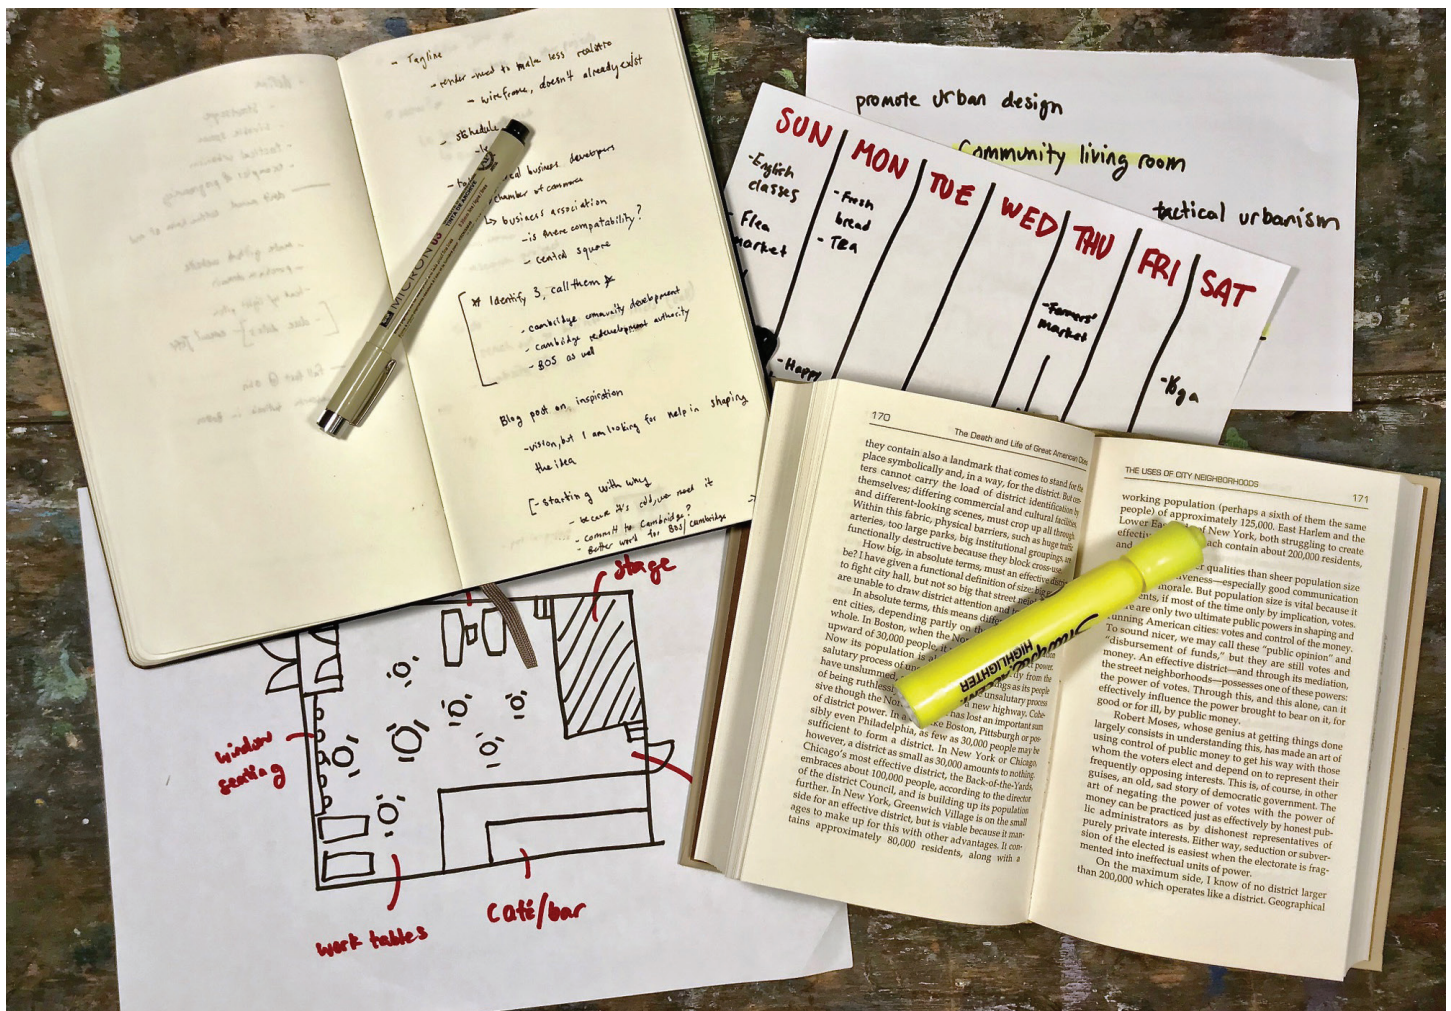 - Tagline
- render - need to make less realistic
- wireframe, doesn't already exist
- schedule
business developers
chamber of commerce
↳ business association
- is there compatability?
- central square
* Identify 3, call them *
- cambridge community development
- cambridge redevelopment authority
- BOS as well
Blog post on inspiration
- vision, but I am looking for help in shaping
the idea
[- starting with why
- because it's cold, we need it
- commit to Cambridge?
- Better work for BOS/Cambridge
MICRON 05
promote urban design
Community living room
tactical urbanism
SUN
- English
classes
- Flea
market
- Happy
MON
- Fresh
bread
- TEA
TUE
WED
THU
- Farmers'
market
FRI
SAT
- Yoga
stage
window
seating
work tables
café/bar
170
The Death and Life of Great American
they contain also a landmark that comes to stand for the
place symbolically and, in a way, for the district. But
ters cannot carry the load of district identification by
themselves; differing commercial and cultural facilities,
and different-looking scenes, must crop up all through.
Within this fabric, physical barriers, such as huge traffic
arteries, too large parks, big institutional groupings, are
functionally destructive because they block cross-use.
How big, in absolute terms, must an effective district
be? I have given a functional definition of size: big
to fight city hall, but not so big that street
are unable to draw district attention and
In absolute terms, this means
ent cities, depending partly on the
whole. In Boston, when the
upward of 30,000 people, it
Now its population is
salutary process of
have unslummed, from the
of being ruthlessly as its people
sive though the unsalutary process
of district power. In a new highway. Cohe-
has lost an important sum
like Boston, Pittsburgh or pos-
sibly even Philadelphia, as few as 30,000 people may be
sufficient to form a district. In New York or Chicago,
however, a district as small as 30,000 amounts to nothing.
Chicago's most effective district, the Back-of-the-Yards,
embraces about 100,000 people, according to the director
of the district Council, and is building up its population
further. In New York, Greenwich Village is on the small
side for an effective district, but is viable because it man-
ages to make up for this with other advantages. It con-
tains approximately 80,000 residents, along with a
THE USES OF CITY NEIGHBORHOODS
171
working population (perhaps a sixth of them the same
people) of approximately 125,000. East Harlem and the
Lower of New York, both struggling to create
effective each contain about 200,000 residents,
and
qualities than sheer population size
—especially good communication
morale. But population size is vital because it
if most of the time only by implication, votes.
are only two ultimate public powers in shaping and
running American cities: votes and control of the money.
To sound nicer, we may call these "public opinion" and
"disbursement of funds," but they are still votes and
money. An effective district—and through its mediation,
the street neighborhoods—possesses one of these powers:
the power of votes. Through this, and this alone, can it
effectively influence the power brought to bear on it, for
good or for ill, by public money.
Robert Moses, whose genius at getting things done
largely consists in understanding this, has made an art of
using control of public money to get his way with those
whom the voters elect and depend on to represent their
frequently opposing interests. This is, of course, in other
guises, an old, sad story of democratic government. The
art of negating the power of votes with the power of
money can be practiced just as effectively by honest pub-
lic administrators as by dishonest representatives of
purely private interests. Either way, seduction or subver-
sion of the elected is easiest when the electorate is frag-
mented into ineffectual units of power.
On the maximum side, I know of no district larger
than 200,000 which operates like a district. Geographical
HIGHLIGHTER